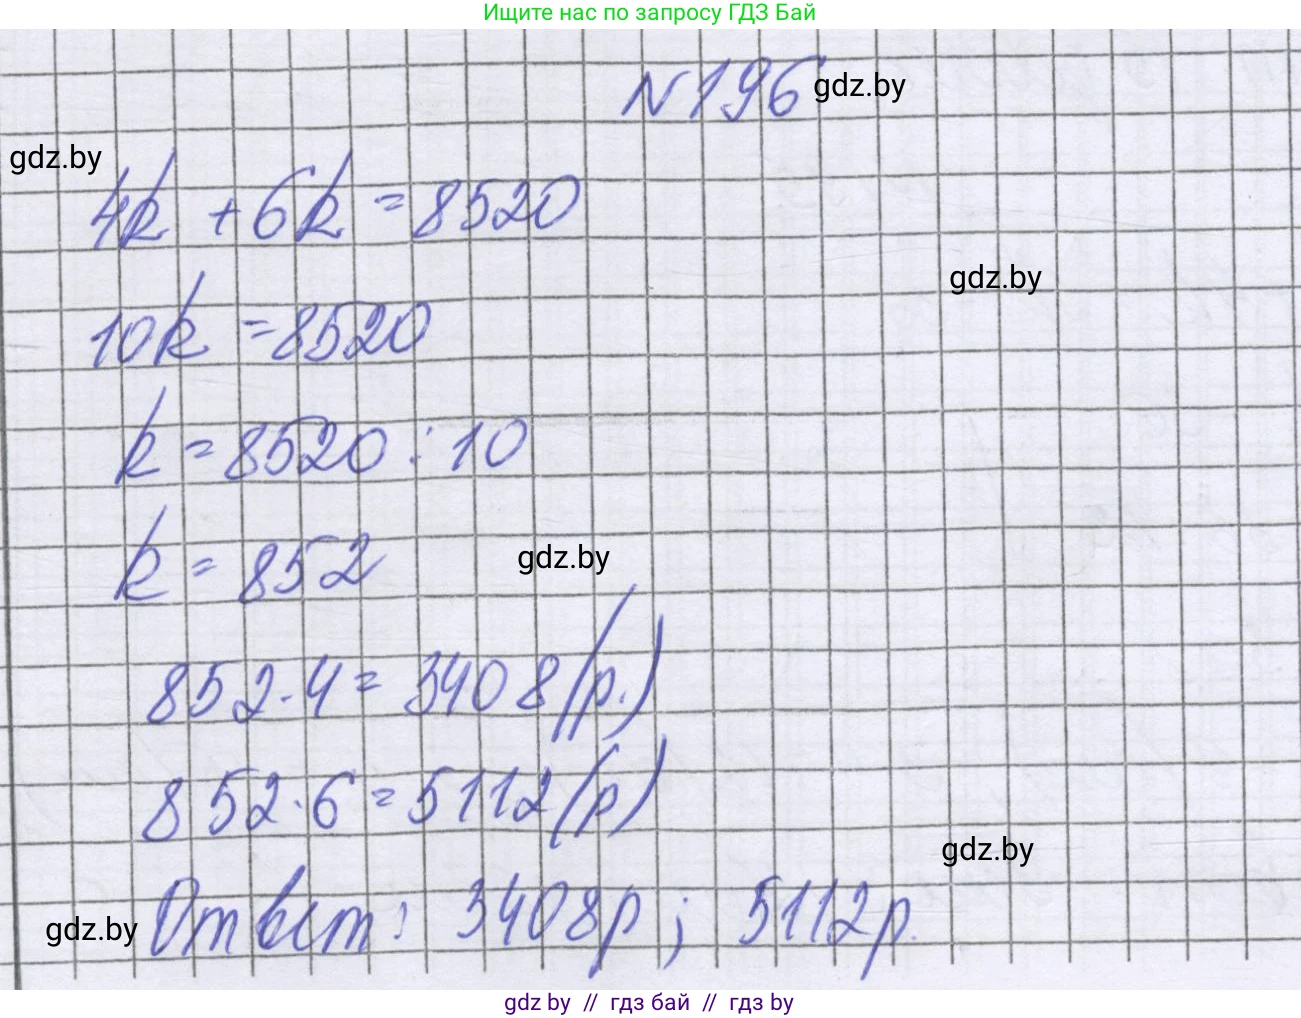 Ищите нас по запросу ГДЗ Бай
N196 gdz.by
gdz.by
4k + 6k = 8520
gdz.by
10k = 8520
k = 8520 : 10
k = 852 gdz.by
852·4 = 3408 (р.)
852·6 = 5112 (р)
gdz.by
gdz.by Ответ: 3408р ; 5112р.
gdz by // гдз бай // гдз by